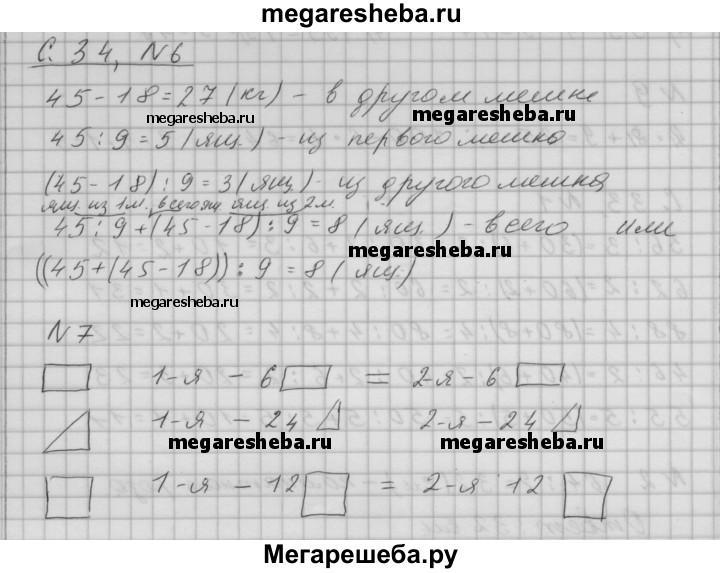 megaresheba.ru
С. 34, N 6
45 - 18 = 27 (кг) - в другом мешке
megaresheba.ru
45 : 9 = 5 (ящ.) - из первого мешка
(45 - 18) : 9 = 3 (ящ.) - из другого мешка
ящ. из 1 м., всего ящ. из 2 м.
45 : 9 + (45 - 18) : 9 = 8 (ящ.) - всего или
((45 + (45 - 18)) : 9 = 8 (ящ.)
megaresheba.ru
N 7
1-я - 6 = 2-я - 6
1-я - 24 2-я - 24
megaresheba.ru megaresheba.ru
1-я - 12 = 2-я 12
Мегарешеба.ру